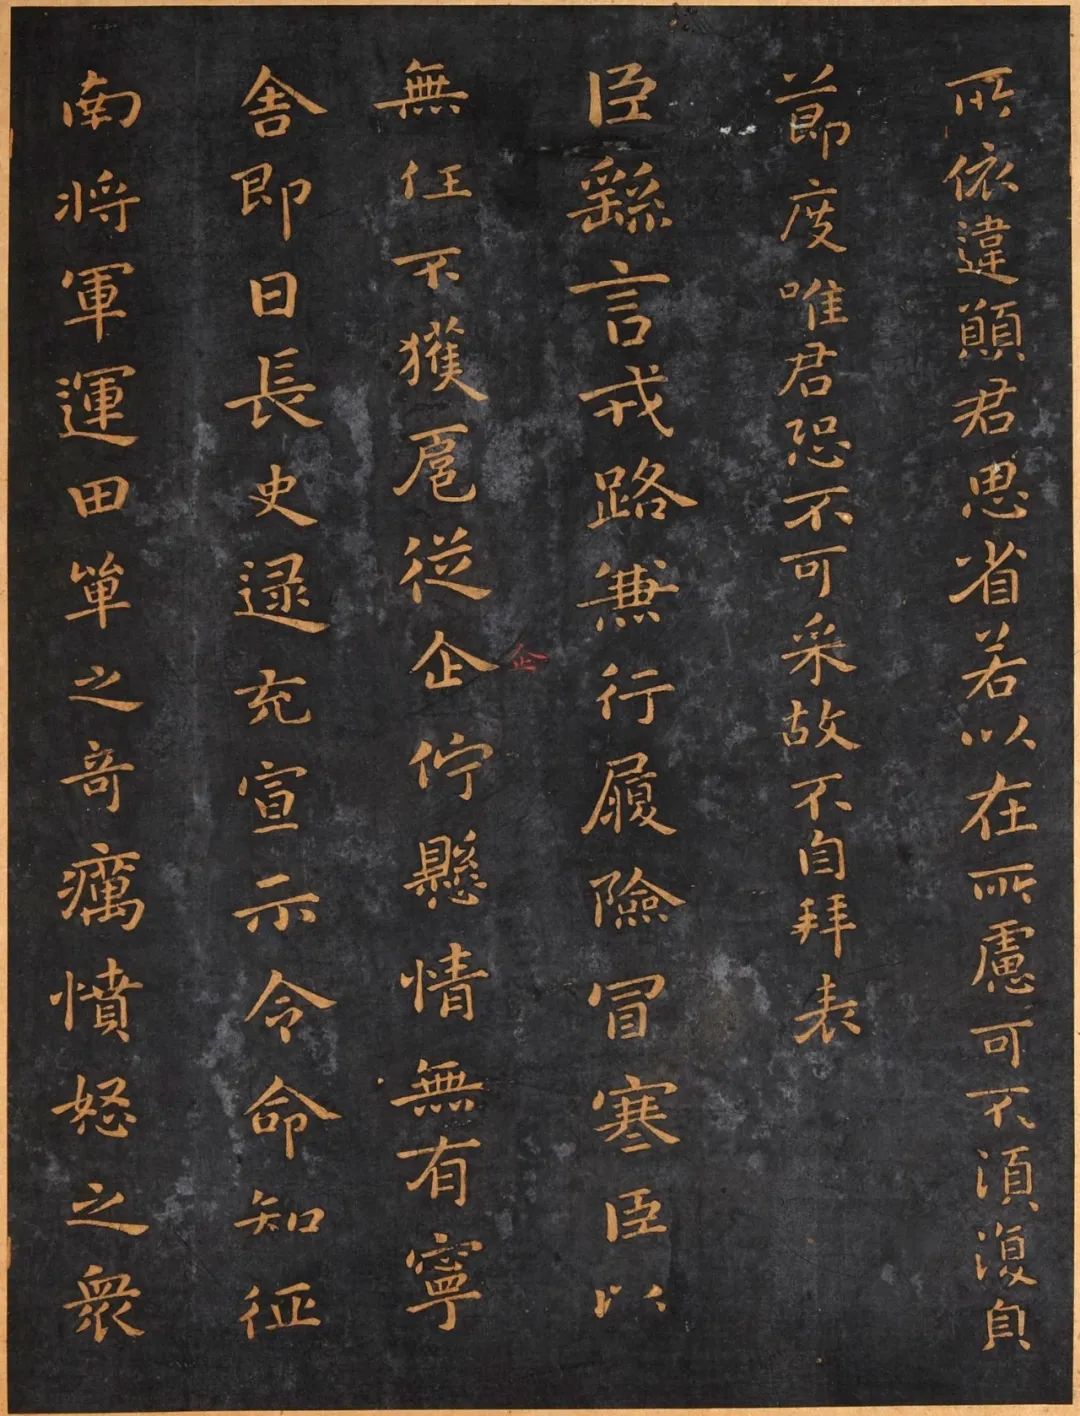 所依違願君思省若以在所慮可不須復㒵
節度唯君恐不可采故不自拜表
臣繇言戎路兼行履險冒寒臣以
無任不獲扈從企佇懸情無有寧
企
舍即日長史逯充宣示令命知征
南將軍運田單之奇癘憤怒之衆